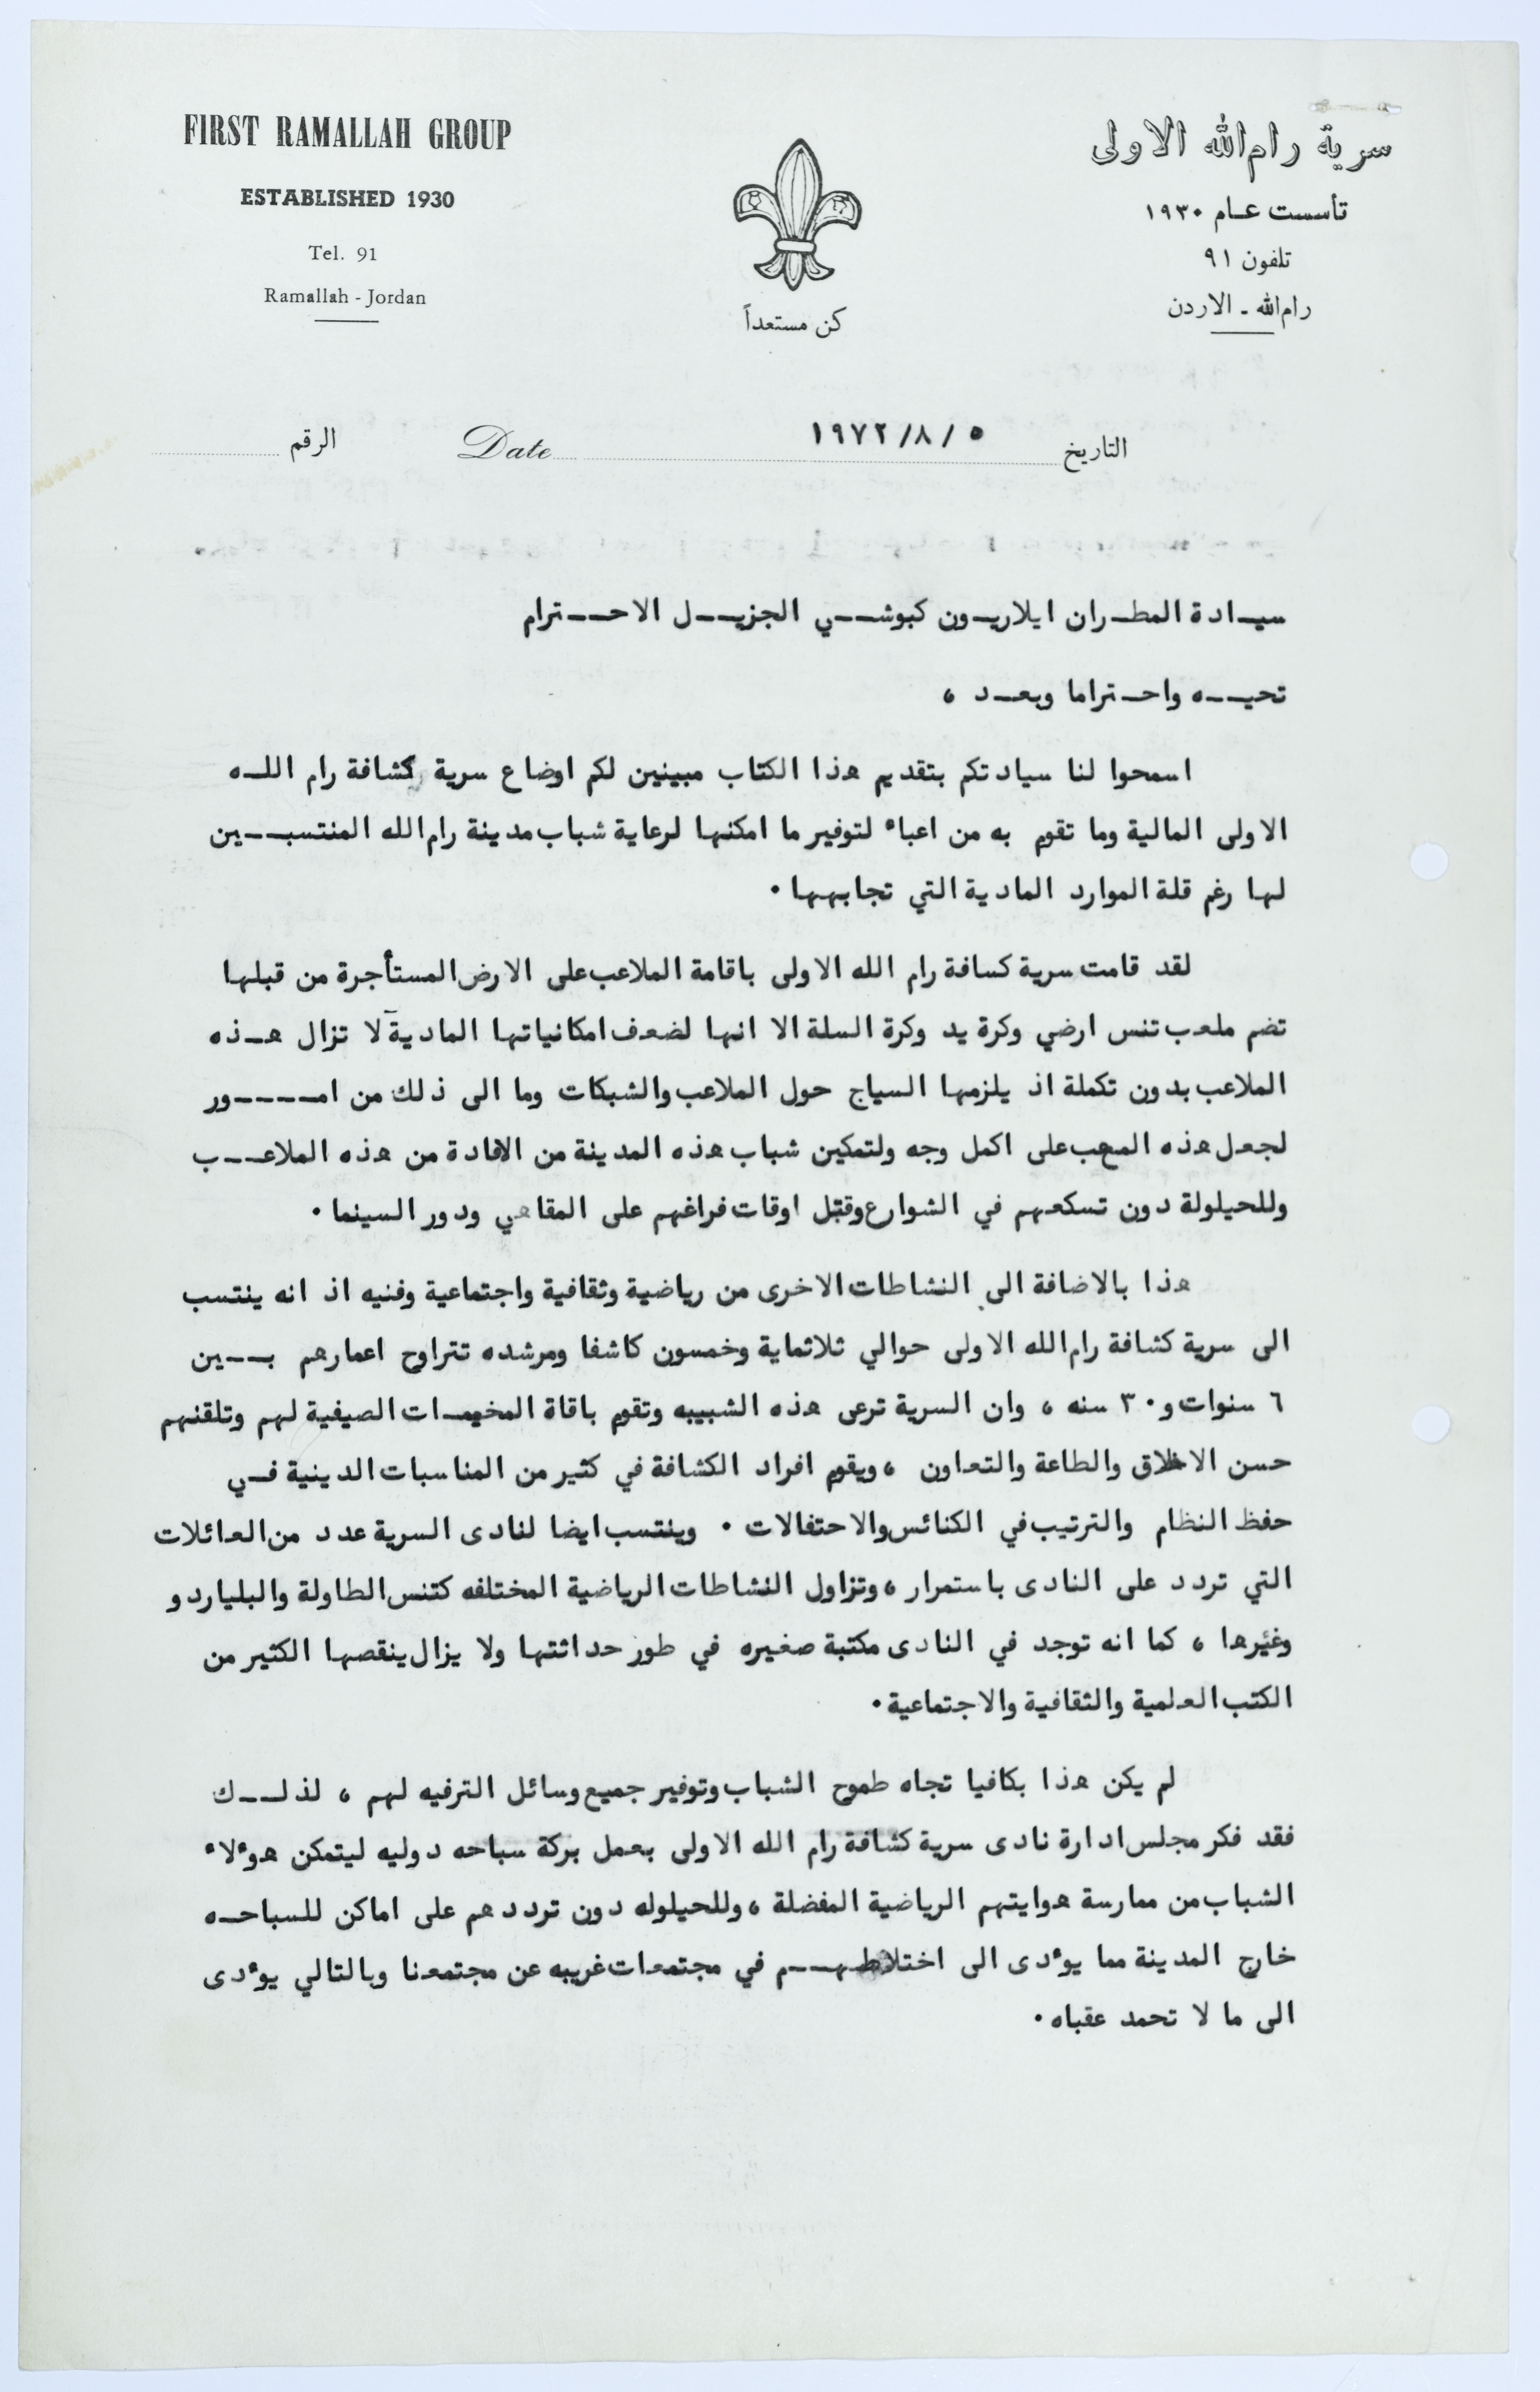 FIRST RAMALLAH GROUP
ESTABLISHED 1930
Tel. 91
Ramallah - Jordan
سرية رام الله الاولى
تأسست عام ١٩٣٠
تلفون ٩١
رام الله - الاردن
كن مستعداً
التاريخ ٥ / ٨/ ١٩٧٢ Date الرقم
سيادة المطران ايلاريون كبوشي الجزيل الاحترام
تحيه واحتراما وبعد ،
اسمحوا لنا سيادتكم بتقديم هذا الكتاب مبينين لكم اوضاع سرية كشافة رام الله
الاولى المالية وما تقوم به من اعباء لتوفير ما امكنها لرعاية شباب مدينة رام الله المنتسبين
لها رغم قلة الموارد المادية التي تجابهها .
لقد قامت سرية كسافة رام الله الاولى باقامة الملاعب على الارض المستأجرة من قبلها
تضم ملعب تنس ارضي وكرة يد وكرة السلة الا انها لضعف امكانياتها المادية لا تزال هذه
الملاعب بدون تكملة اذ يلزمها السياج حول الملاعب والشبكات وما الى ذلك من امور
لجعل هذه على اكمل وجه ولتمكين شباب هذه المدينة من الافادة من هذه الملاعب
وللحيلولة دون تسكعهم في الشوارع وقتل اوقات فراغهم على المقاهي ودور السينما .
هذا بالاضافة الى النشاطات الاخرى من رياضية وثقافية واجتماعية وفنيه اذ انه ينتسب
الى سرية كشافة رام الله الاولى حوالي ثلاثماية وخمسون كاشفا ومرشده تتراوح اعمارهم بين
٦ سنوات و ٣٠ سنه ، وان السرية ترعى هذه الشبيبه وتقوم باقاة المخيمات الصيفية لهم وتلقنهم
حسن الاخلاق والطاعة والتعاون ، ويقوم افراد الكشافة في كثير من المناسبات الدينية في
حفظ النظام والترتيب في الكنائس والاحتفالات . وينتسب ايضا لنادى السرية عدد من العائلات
التي تردد على النادى باستمرار ، وتزاول النشاطات الرياضية المختلفه كتنس الطاولة والبلياردو
وغيرها ، كما انه توجد في النادى مكتبة صغيره في طور حداثتها ولا يزال ينقصها الكثير من
الكتب العلمية والثقافية والاجتماعية .
لم يكن هذا بكافيا تجاه طموح الشباب وتوفير جميع وسائل الترفيه لهم ، لذلك
فقد فكر مجلس ادارة نادى سرية كشافة رام الله الاولى بعمل بركة سباحه دوليه ليتمكن هؤلاء
الشباب من ممارسة هوايتهم الرياضية المفضلة ، وللحيلوله دون ترددهم على اماكن للسباحه
خارج المدينة مما يؤدى الى اختلاطهم في مجتمعات غريبه عن مجتمعنا وبالتالي يؤدى
الى ما لا تحمد عقباه .